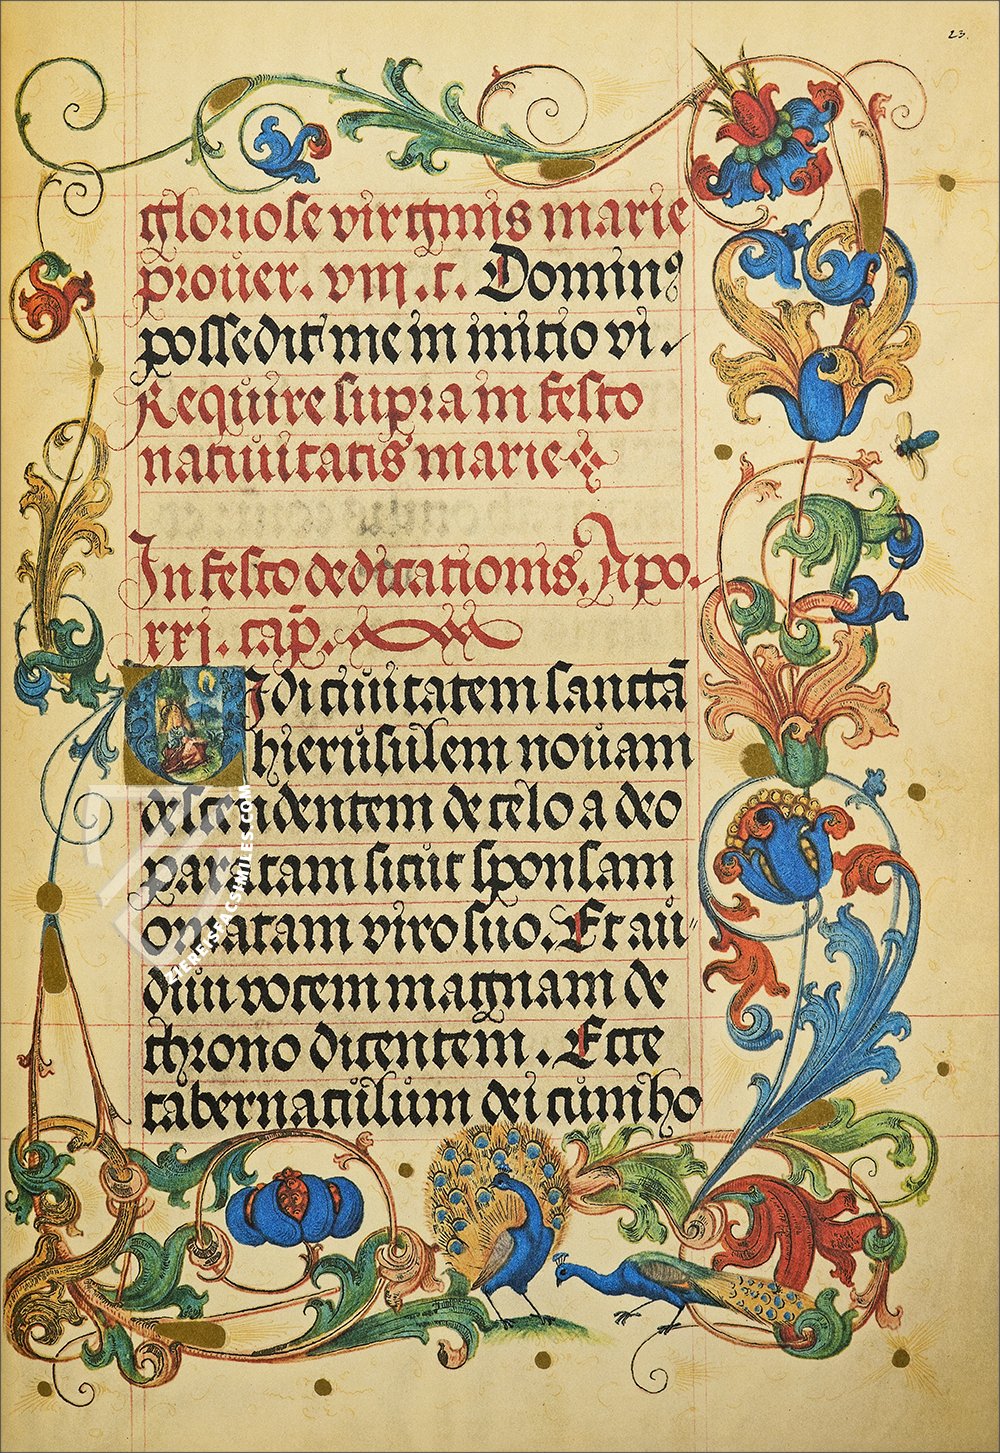 23.
gloriose virginis marie
prouer. viii. c. Dominꝰ
possedit me in initio vi.
Require supra in festo
natiuitatis marie
In festo dedicationis. Apo.
xxj. cap̄.
Vidi ciuitatem sanctā
hierusulem nouam
descendentem de celo a deo
paratam sicut sponsam
ornatam viro suo. Et au
diui vocem magnam de
throno dicentem. Ecce
tabernaculum dei cum ho
ZIEREISFACSIMILES.COM